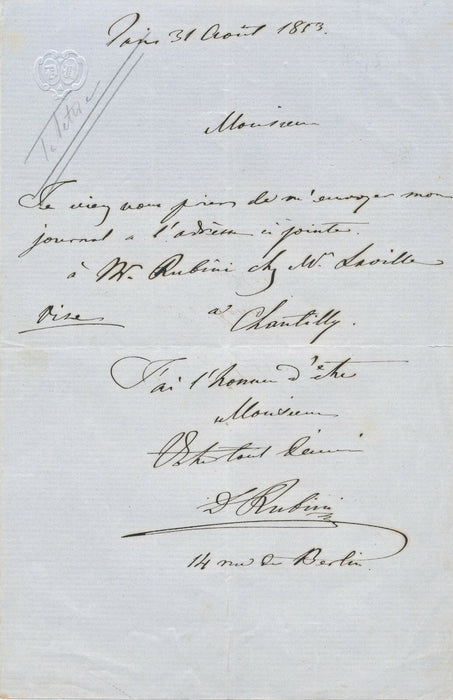 Paris 31 Août 1853.
Monsieur
Je viens vous prier de m'envoyer mon
journal a l'adresse ci jointe.
à Mr. Rubini chez Mr. Laville
Oise a Chantilly.
J'ai l'honneur d'être
Monsieur
Votre tout dévoué
Dr Rubini
14 rue de Berlin.